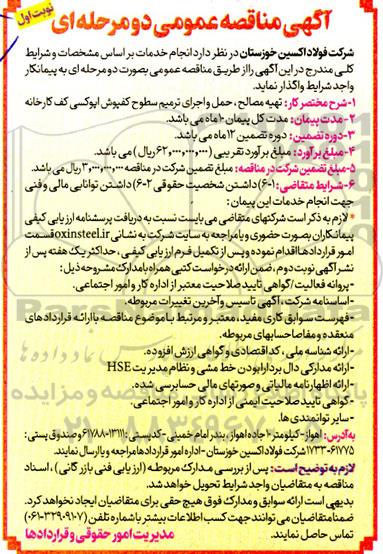 نوبت اول
آگهی مناقصه عمومی دو مرحله ای
شرکت فولاد اکسین خوزستان در نظر دارد انجام خدمات بر اساس مشخصات و شرایط
کلی مندرج در این آگهی را از طریق مناقصه عمومی بصورت دو مرحله ای به پیمانکار
واجد شرایط واگذار نماید.
۱-شرح مختصر کار: تهیه مصالح، حمل و اجرای ترمیم سطوح کفپوش اپوکسی کف کارخانه
۲-مدت پیمان: مدت کل پیمان ۱۰ ماه می باشد.
۳-دوره تضمین: دوره تضمین ۱۲ ماه می باشد.
۴-مبلغ برآورد: مبلغ برآورد تقریبی (۶۲,۰۰۰,۰۰۰,۰۰۰ ریال) می باشد.
۵-مبلغ تضمین شرکت در مناقصه: مبلغ تضمین شرکت در مناقصه ۳,۰۰۰,۰۰۰,۰۰۰ ریال می باشد.
۶-شرایط متقاضی: ۱-۶) داشتن شخصیت حقوقی ۲-۶) داشتن توانایی مالی و فنی
جهت انجام خدمات این پیمان:
*لازم به ذکر است شرکتهای متقاضی می بایست نسبت به دریافت پرسشنامه ارزیابی کیفی
پیمانکاران بصورت حضوری و یا مراجعه به سایت شرکت به نشانی oxinsteel.ir قسمت
امور قراردادها اقدام نموده و پس از تکمیل فرم ارزیابی کیفی، حداکثر یک هفته پس از
نشر آگهی نوبت دوم، ضمن ارائه درخواست کتبی همراه با مدارک مشروحه ذیل:
-پروانه فعالیت/گواهی تایید صلاحیت معتبر از اداره کار و امور اجتماعی.
-اساسنامه شرکت، آگهی تاسیس و آخرین تغییرات مربوطه.
-فهرست سوابق کاری مفید، معتبر و مرتبط با موضوع مناقصه با ارائه قراردادهای
منعقده و مفاصا حسابهای مربوطه.
-ارائه شناسه ملی، کد اقتصادی و گواهی ارزش افزوده.
-ارائه مدارکی دال بر دارا بودن خط مشی و نظام مدیریت HSE
-ارائه اظهارنامه مالیاتی و صورتهای مالی حسابرسی شده.
-گواهی تایید صلاحیت ایمنی از اداره کار و امور اجتماعی.
-سایر توانمندی ها.
به آدرس: اهواز-کیلومتر ۱۰ جاده اهواز، بندر امام خمینی-کدپستی: ۱۳۱۱۱-۶۱۷۸۸ و صندوق پستی:
۶۱۷۷۵-۱۷۳۳ شرکت فولاد اکسین خوزستان-اداره امور قراردادها مراجعه و یا ارسال نمایند.
لازم به توضیح است: پس از بررسی مدارک مربوطه (ارزیابی فنی بازرگانی)، اسناد
مناقصه به متقاضیان واجد شرایط تحویل خواهد شد.
بدیهی است ارائه سوابق و مدارک فوق هیچ حقی برای متقاضیان ایجاد نخواهد کرد.
ضمنا متقاضیان می توانند جهت کسب اطلاعات بیشتر با شماره تلفن (۳۲۹۰۹۱۰۷-۰۶۱)
تماس حاصل نمایند.
مدیریت امور حقوقی و قراردادها